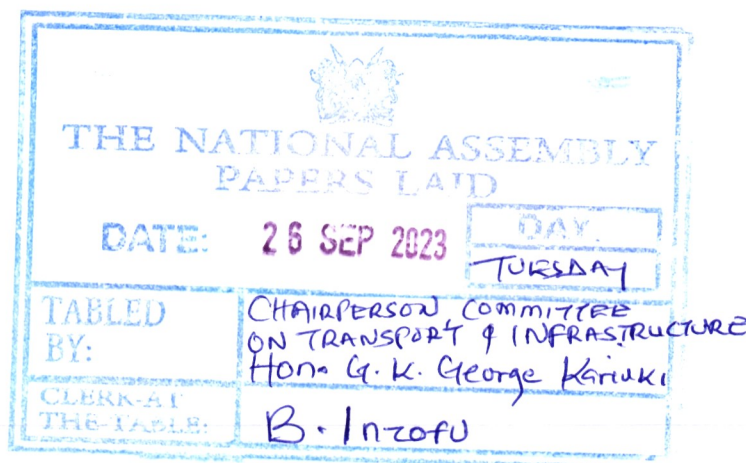 THE NATIONAL ASSEMBLY
PAPERS LAID
DATE: 26 SEP 2023
DAY.
TUESDAY
TABLED BY:
CHAIRPERSON, COMMITTEE
ON TRANSPORT & INFRASTRUCTURE
Hon. G. K. George Kariuki
CLERK-AT THE-TABLE:
B. Inzofu